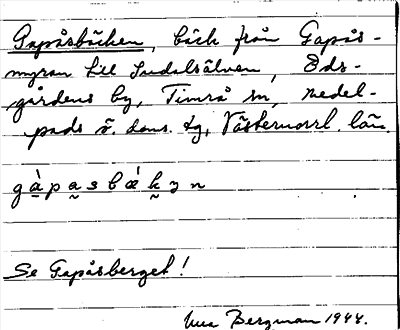 Gapåsbäcken, bäck från Gapås-
myran till Indalsälven, Öds-
gårdens by, Timrå sn, Medel-
pads ö. doms. tg, Västernorrl. län.
gàpasbækən
Se Gapåsberget!
Bergman 1944.